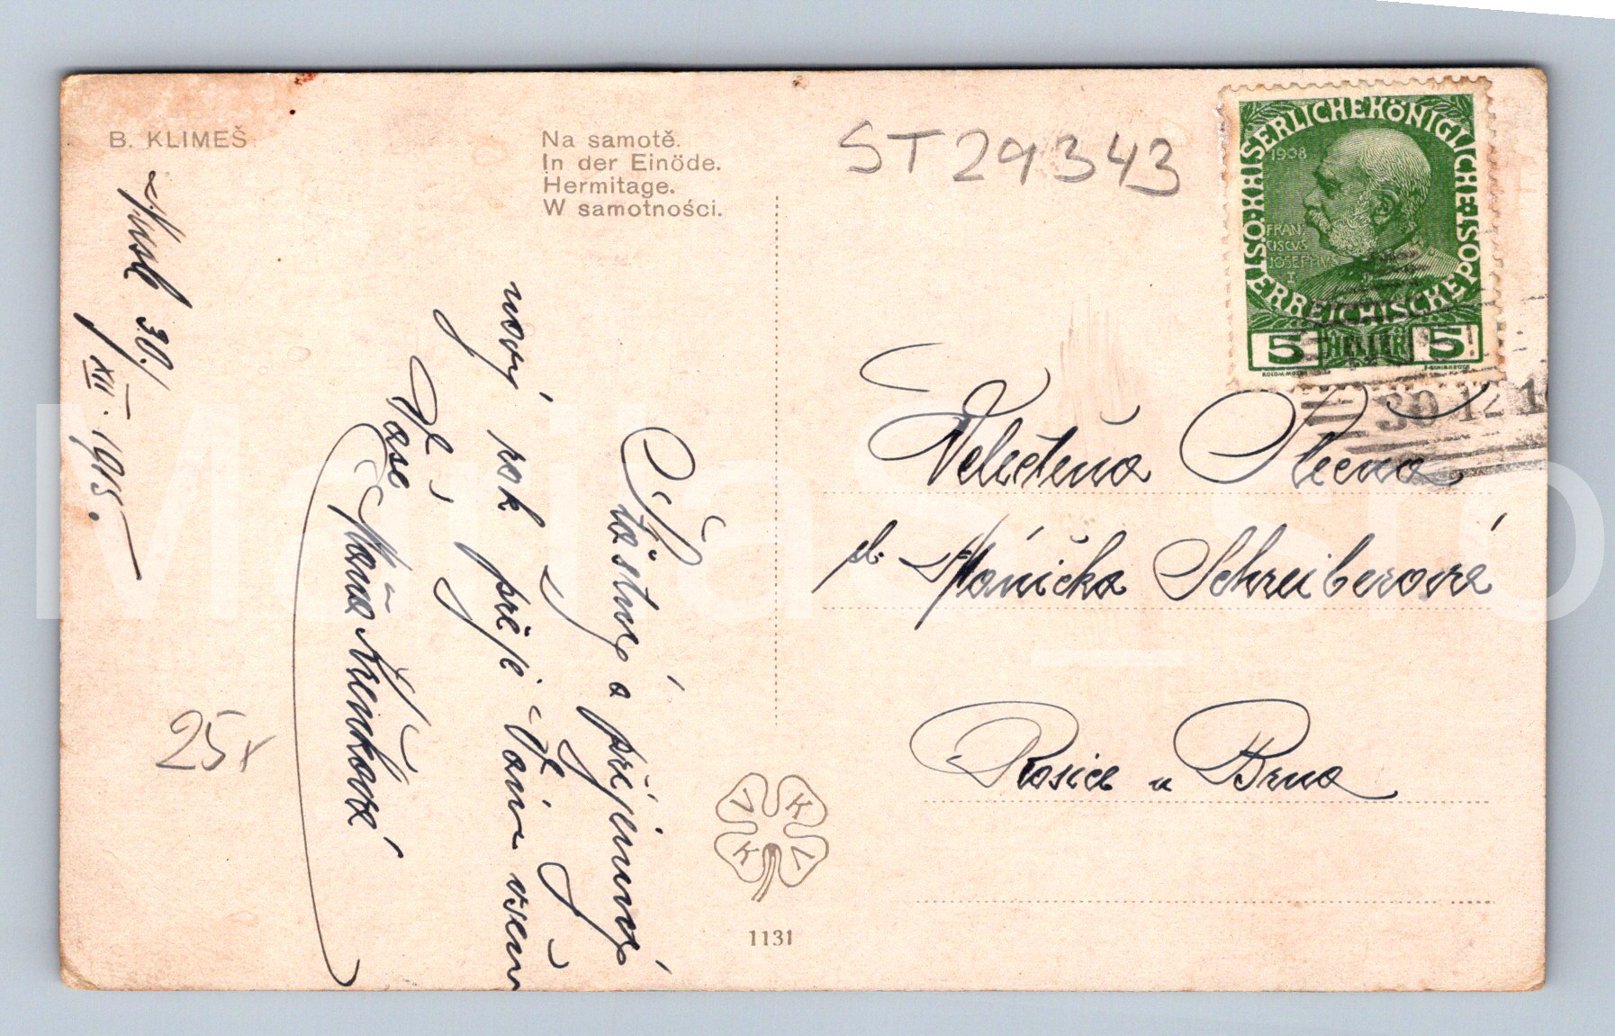 B. KLIMEŠ
Na samotě.
In der Einöde.
Hermitage.
W samotności.
ST29343
KAISERLICHEKÖNIGLICHE ÖSTERREICHISCHE POST
1908
FRAN
CISCUS
JOSEPHUS
I
5 HELLER 5
30.12.1
30./XII. 1915.
Šťastný a příjemný
nový rok přeje Vám všem
Vaše
Veledctěná Slečna
sl. Mánička Schreiberová
Rosice u Brna
25x
V K K V
1131